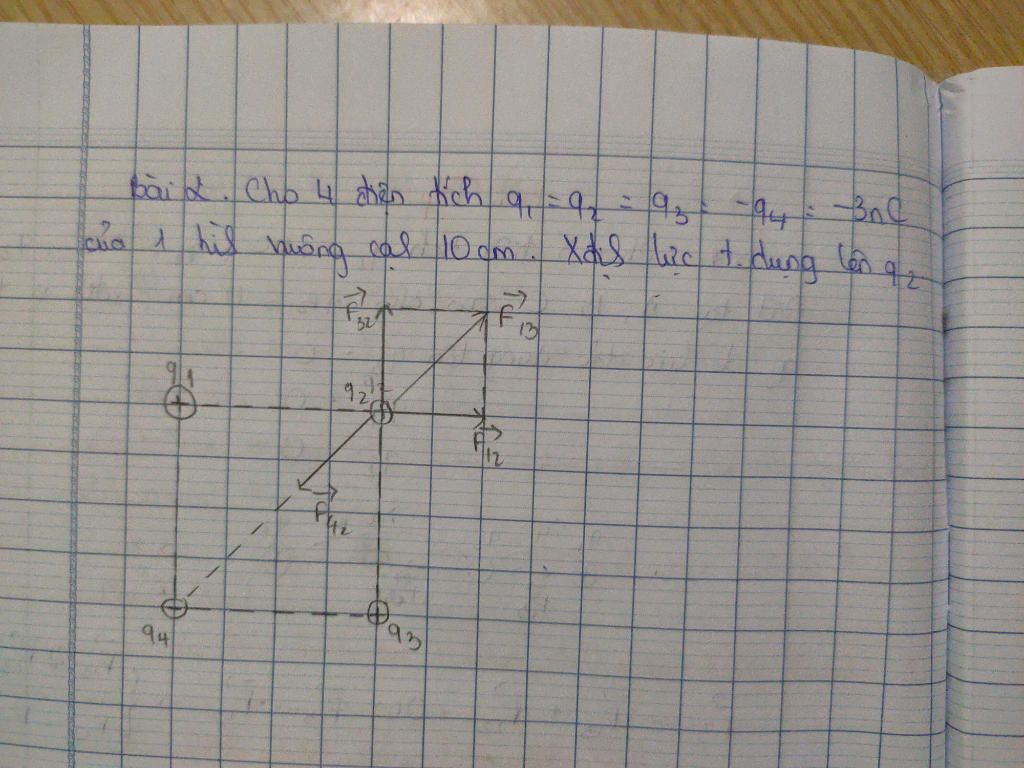 Bài 2. Cho 4 điện tích q1 = q2 = q3 = -q4 = -3nC
của 1 hìh vuông cạh 10 cm. Xđịh lực t.dụng lên q2
F32
F13
q1
q2
F12
F42
q4
q3